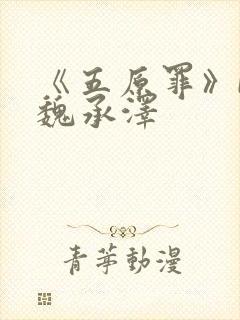 《五原罪》
魏承泽
青苹动漫